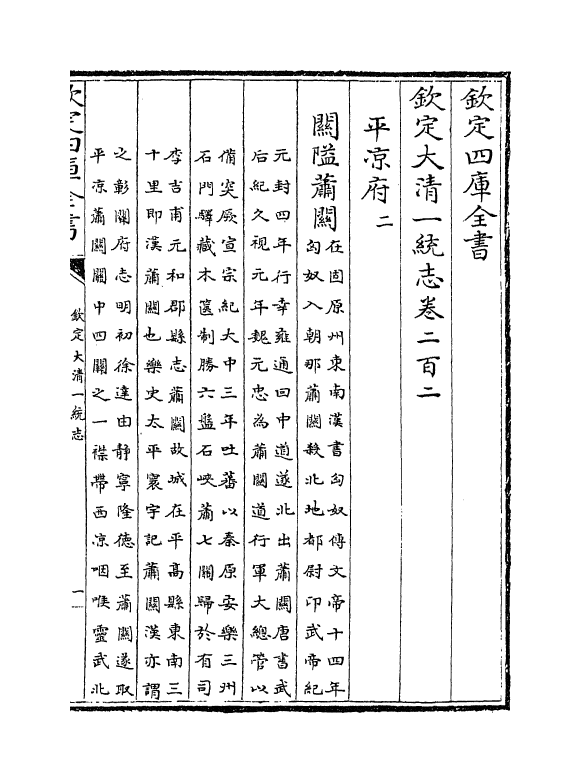 欽定四庫全書
欽定大清一統志卷二百二
平凉府二
關隘蕭關
在固原州東南漢書匈奴傳文帝十四年
匈奴入朝那蕭關殺北地都尉卬武帝紀
元封四年行幸雍通回中道遂北出蕭關唐書武
后紀久視元年魏元忠為蕭關道行軍大總管以
備突厥宣宗紀大中三年吐蕃以秦原安樂三州
石門驛藏木篋制勝六盤石峽蕭七關歸於有司
李吉甫元和郡縣志蕭關故城在平高縣東南三
十里即漢蕭關也樂史太平寰宇記蕭關漢亦謂
之彰關府志明初徐達由靜寧隆德至蕭關遂取
平凉蕭關關中四關之一襟帶西凉咽喉靈武北
欽定四庫全書
欽定大清一統志
一